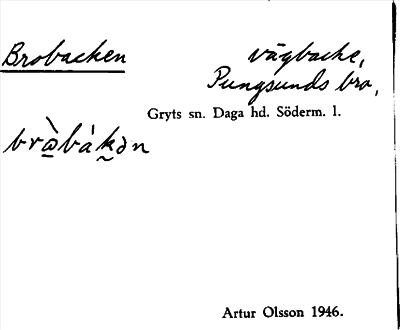 Brobacken
vägbacke,
Pungsunds bro,
Gryts sn. Daga hd. Söderm. l.
brὰ̱bákən
Artur Olsson 1946.